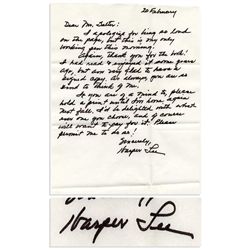 20 February
Dear Mr. 
I apologize for being so hard
on the page, but this is my only
working pen this morning!
Again, thank you for the book!
I had read & enjoyed it some years
ago, but am very glad to have a
signed copy. As always, you are so
kind to think of me.
If you are of a mind to, please
hold a print until I'm home again
next fall. I'd be delighted with which
ever one you choose, and of course
will want to pay you for it. Please
permit me to do so!
Sincerely,
Harper Lee
Harper Lee